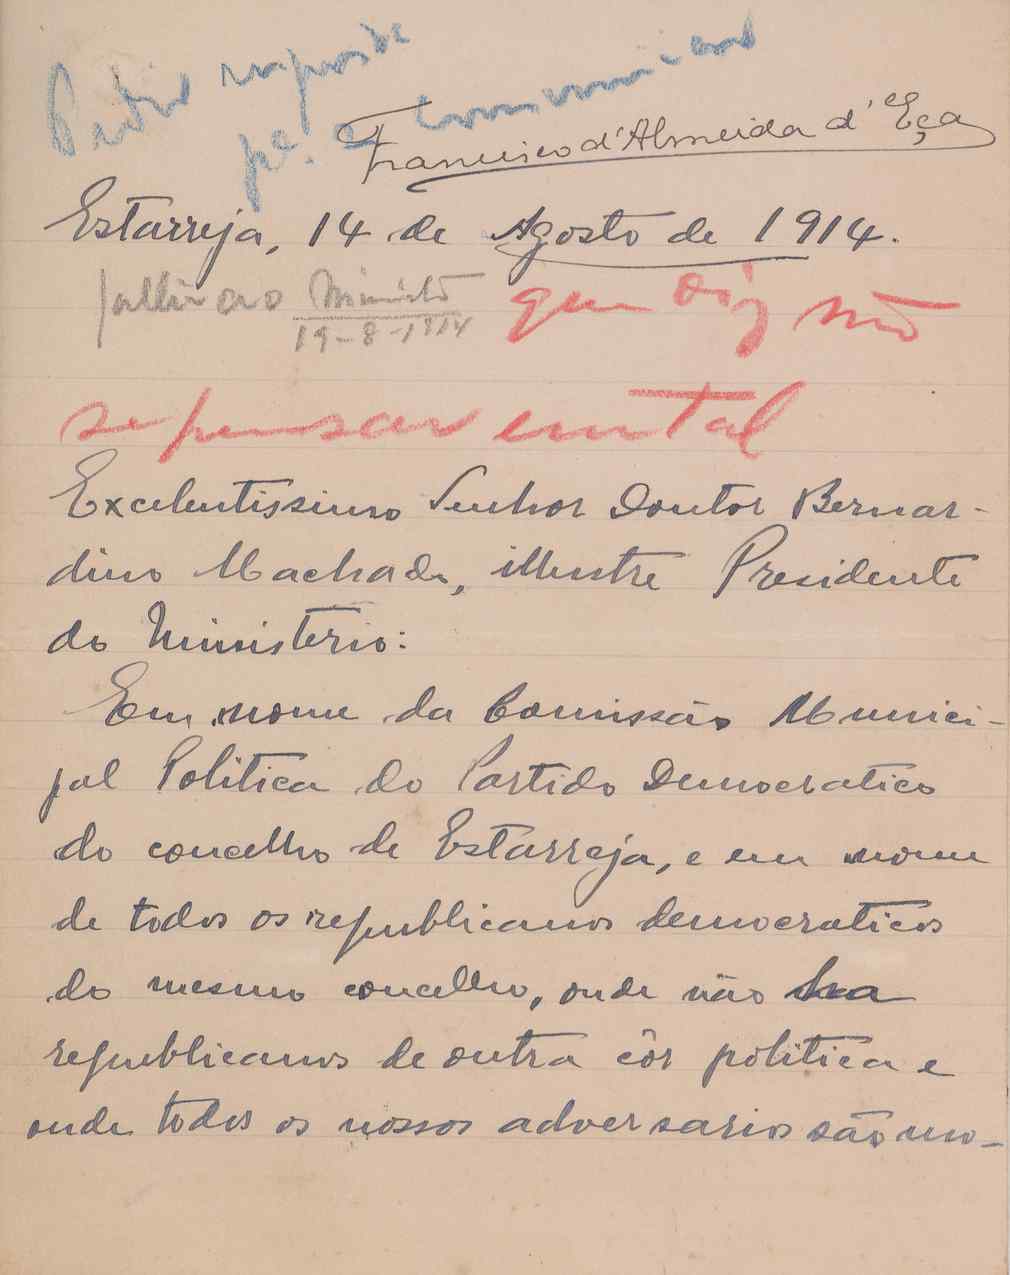 Pedid resposta
pa. o comunicad
Francisco d'Almeida d'Eça
Estarreja, 14 de Agosto de 1914.
fallei ao Ministro que diz não
19-8-1914
se pensar em tal
Excelentissimo Senhor Doutor Bernar-
dino Machado, illustre Presidente
do Ministerio:
Em nome da Comissão Munici-
pal Politica do Partido Democratico
do concelho de Estarreja, e em nome
de todos os republicanos democraticos
do mesmo concelho, onde não ha
republicanos de outra côr politica e
onde todos os nossos adversarios são mo-